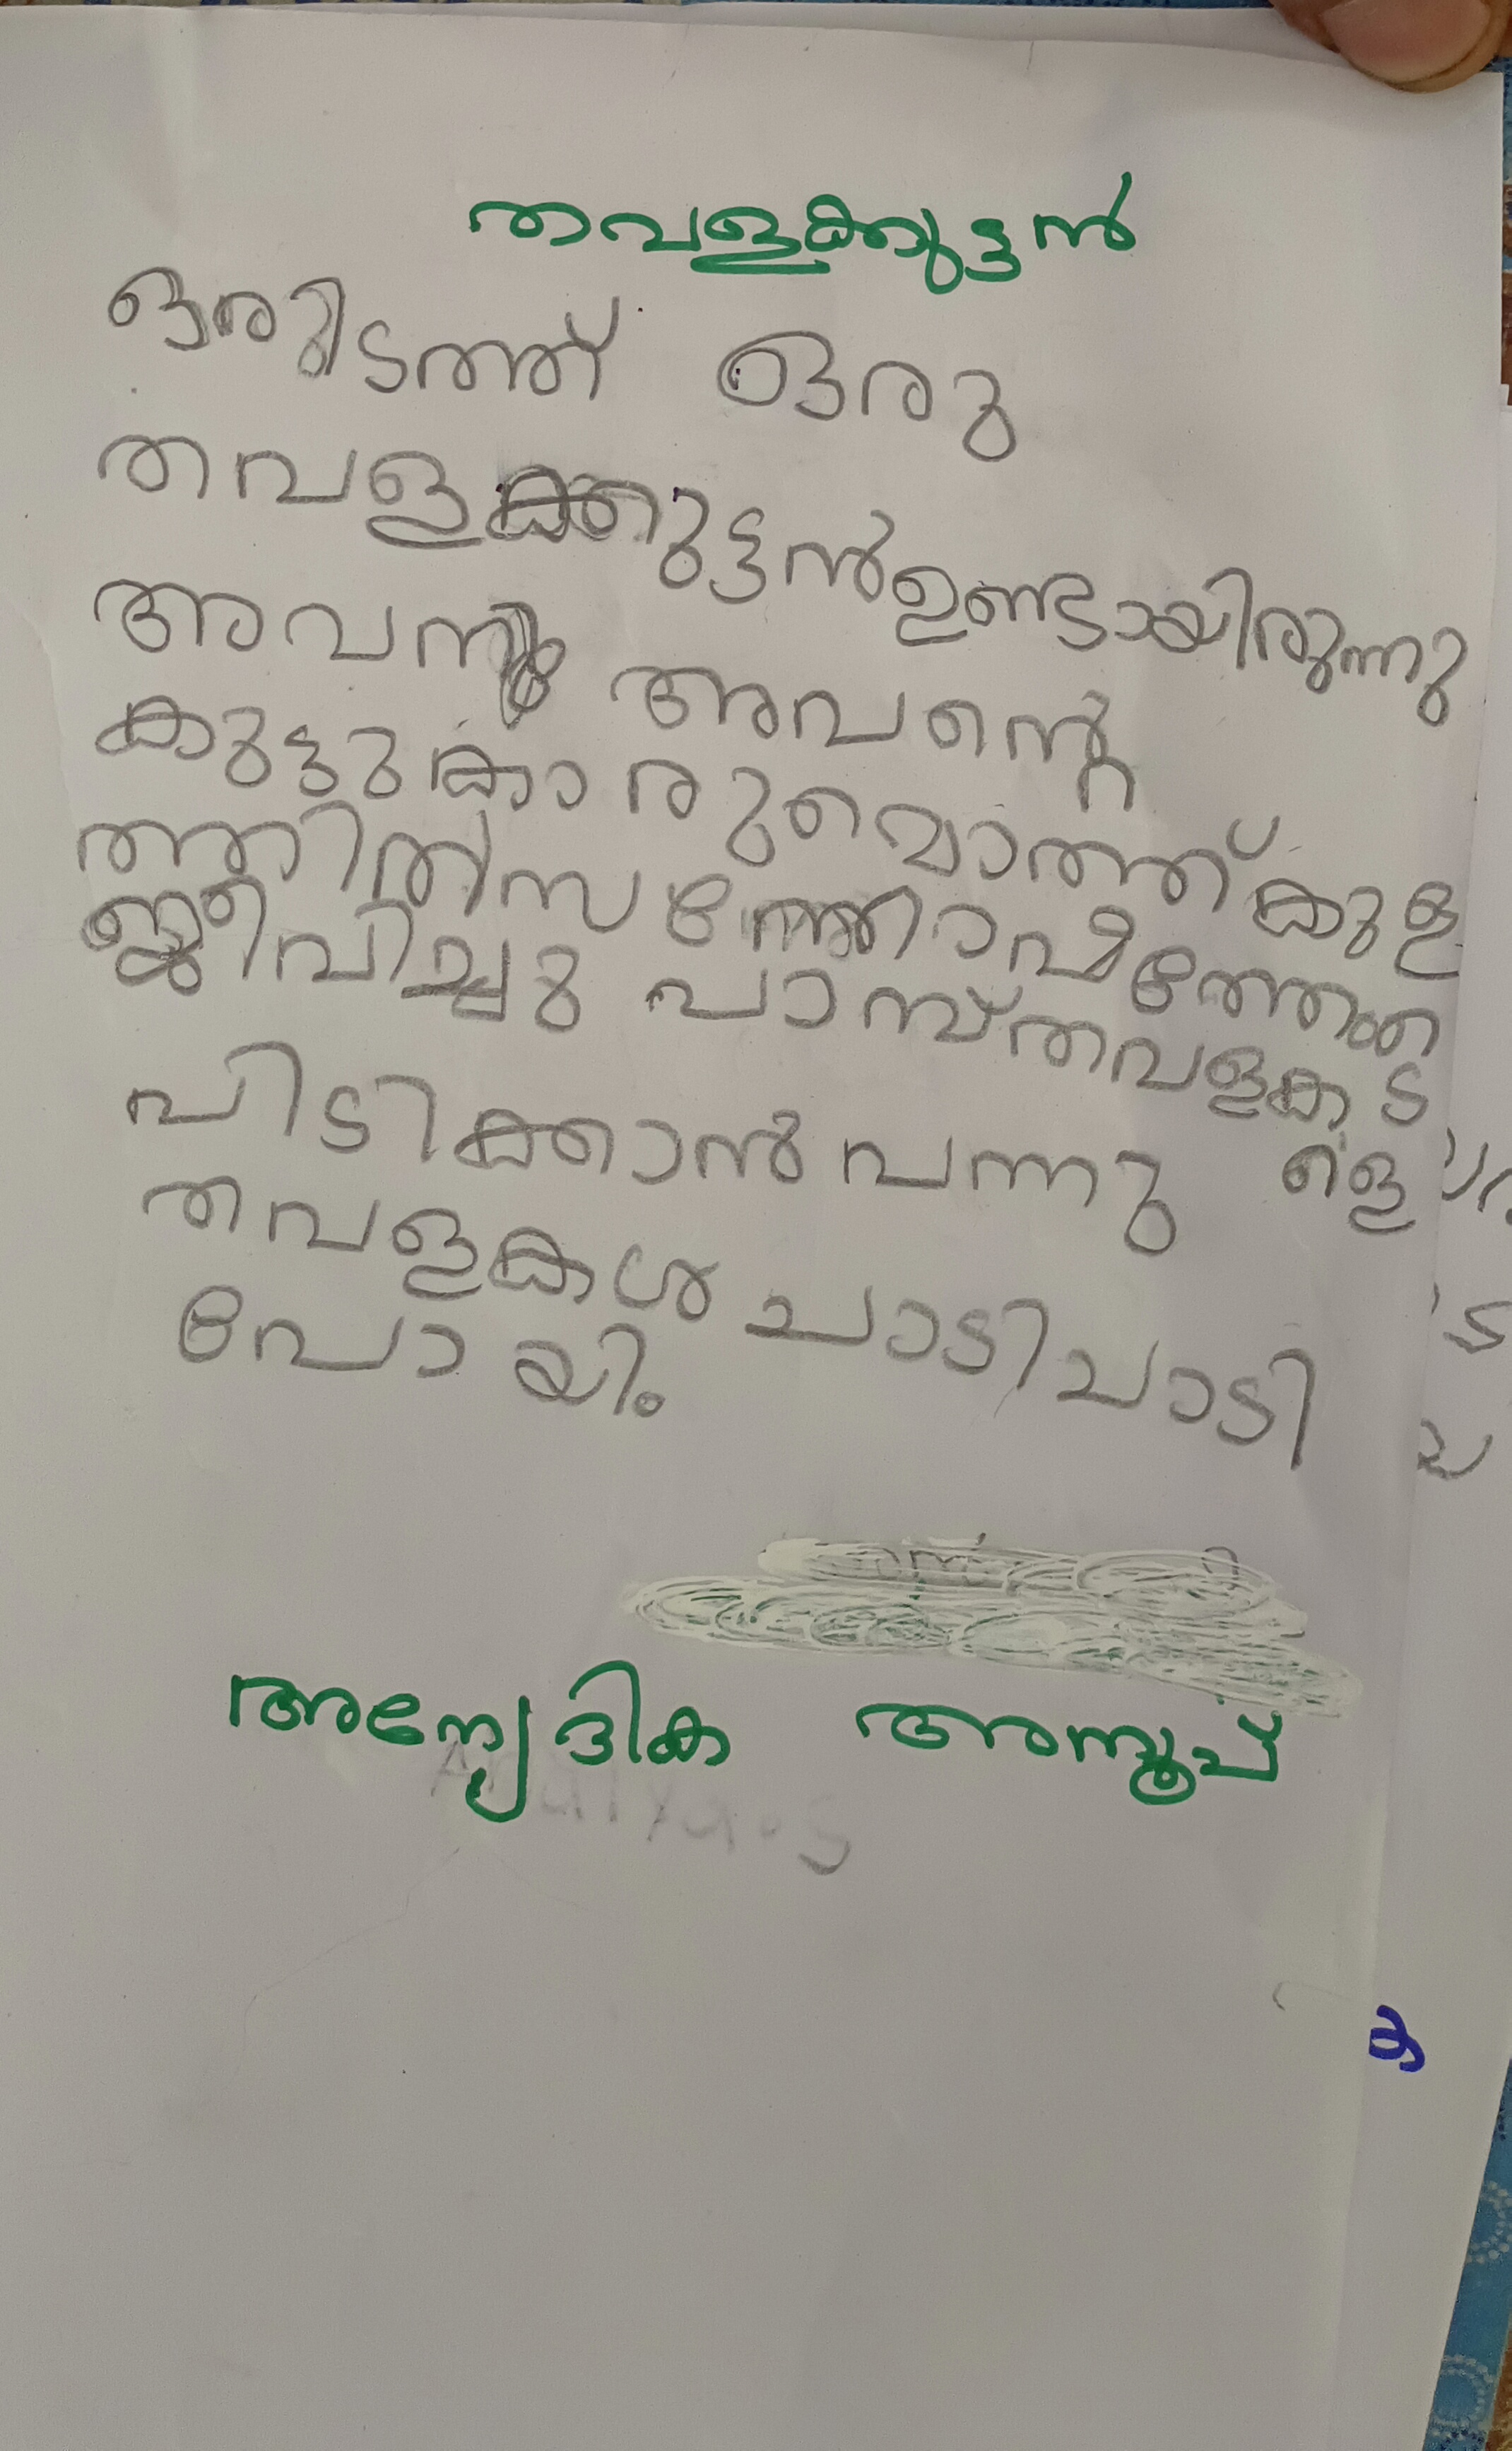 തവളക്കുട്ടൻ
ഒരിടത്ത് ഒരു
തവളക്കുട്ടൻ ഉണ്ടായിരുന്നു
അവനും അവന്റെ
കുട്ടുകാരുമൊത്ത് കുള
ത്തിൽ സന്തോഷത്തോടെ
ജീവിച്ചു പാമ്പ് തവളക
പിടിക്കാൻ വന്നു ളെ
തവളകൾ ചാടി ചാടി
പോയി.
അന്വേദിക അനൂപ്
ക